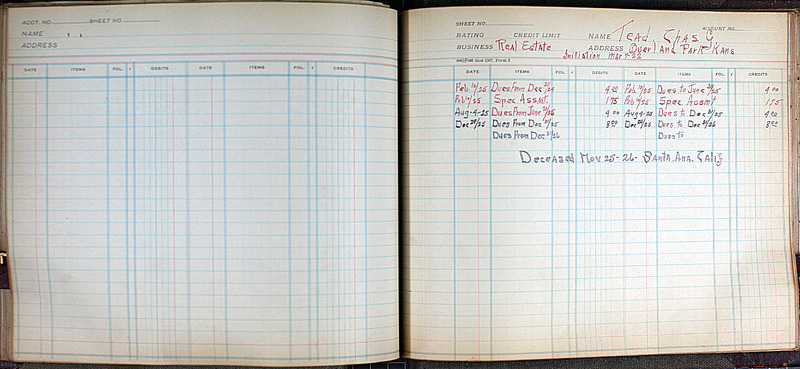 ACCT. NO. SHEET NO.
NAME
ADDRESS
DATE ITEMS FOL. √ DEBITS DATE ITEMS FOL. √ CREDITS
SHEET NO. ACCOUNT NO.
RATING CREDIT LIMIT NAME Tead, Chas G
BUSINESS Real Estate ADDRESS Overland Park Kans
Initiation Mar
DATE ITEMS FOL. √ DEBITS DATE ITEMS FOL. √ CREDITS
Feb 10/25 Dues From Dec 31/24 4 00 Feb 10/25 Dues to June 30/25 4 00
Feb 10/25 Spec Assmt. 1 75 Feb 10/25 Spec Assmt 1 75
Aug-4-25 Dues From June 30/25 4 00 Aug-4-25 Dues to Dec 31/25 4 00
Dec /25 Dues From Dec 31/25 8 00 Dec /25 Dues to Dec 31/26 8 00
Dues From Dec 31/26 Dues to
Deceased Nov 25-26- Santa. Ana. Calif